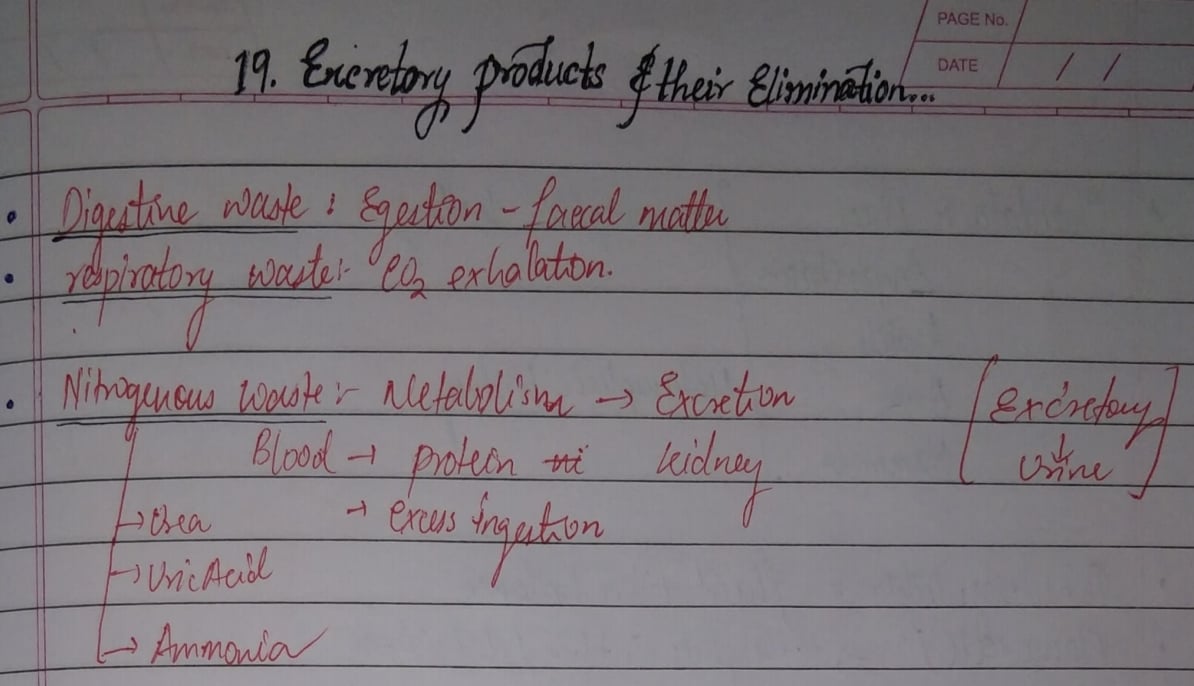 PAGE No.
DATE / /
19. Excretory products & their Elimination...
• Digestive waste : Egestion - faecal matter
• respiratory waste:- CO₂ exhalation.
• Nitrogenous waste :- Metabolism → Excretion [Excretory
Blood → protein kidney ↓ Urine]
→ Urea → excess ingestion
→ Uric Acid
→ Ammonia